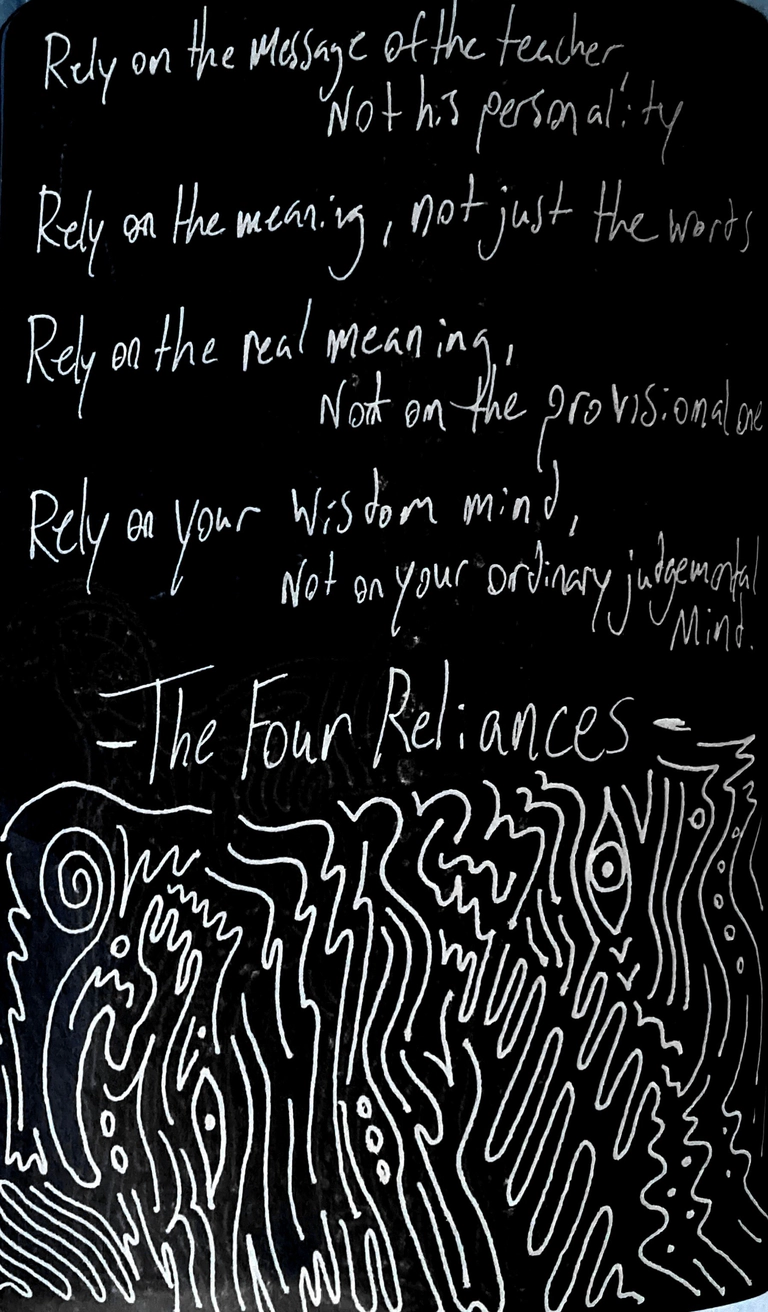 Rely on the message of the teacher,
Not his personality
Rely on the meaning, not just the words
Rely on the real meaning,
Not on the provisional one
Rely on your wisdom mind,
Not on your ordinary judgemental
Mind.
- The Four Reliances -